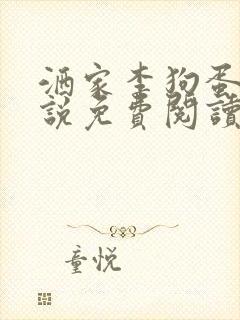 洒家李狗蛋
說免費閱讀
童悅